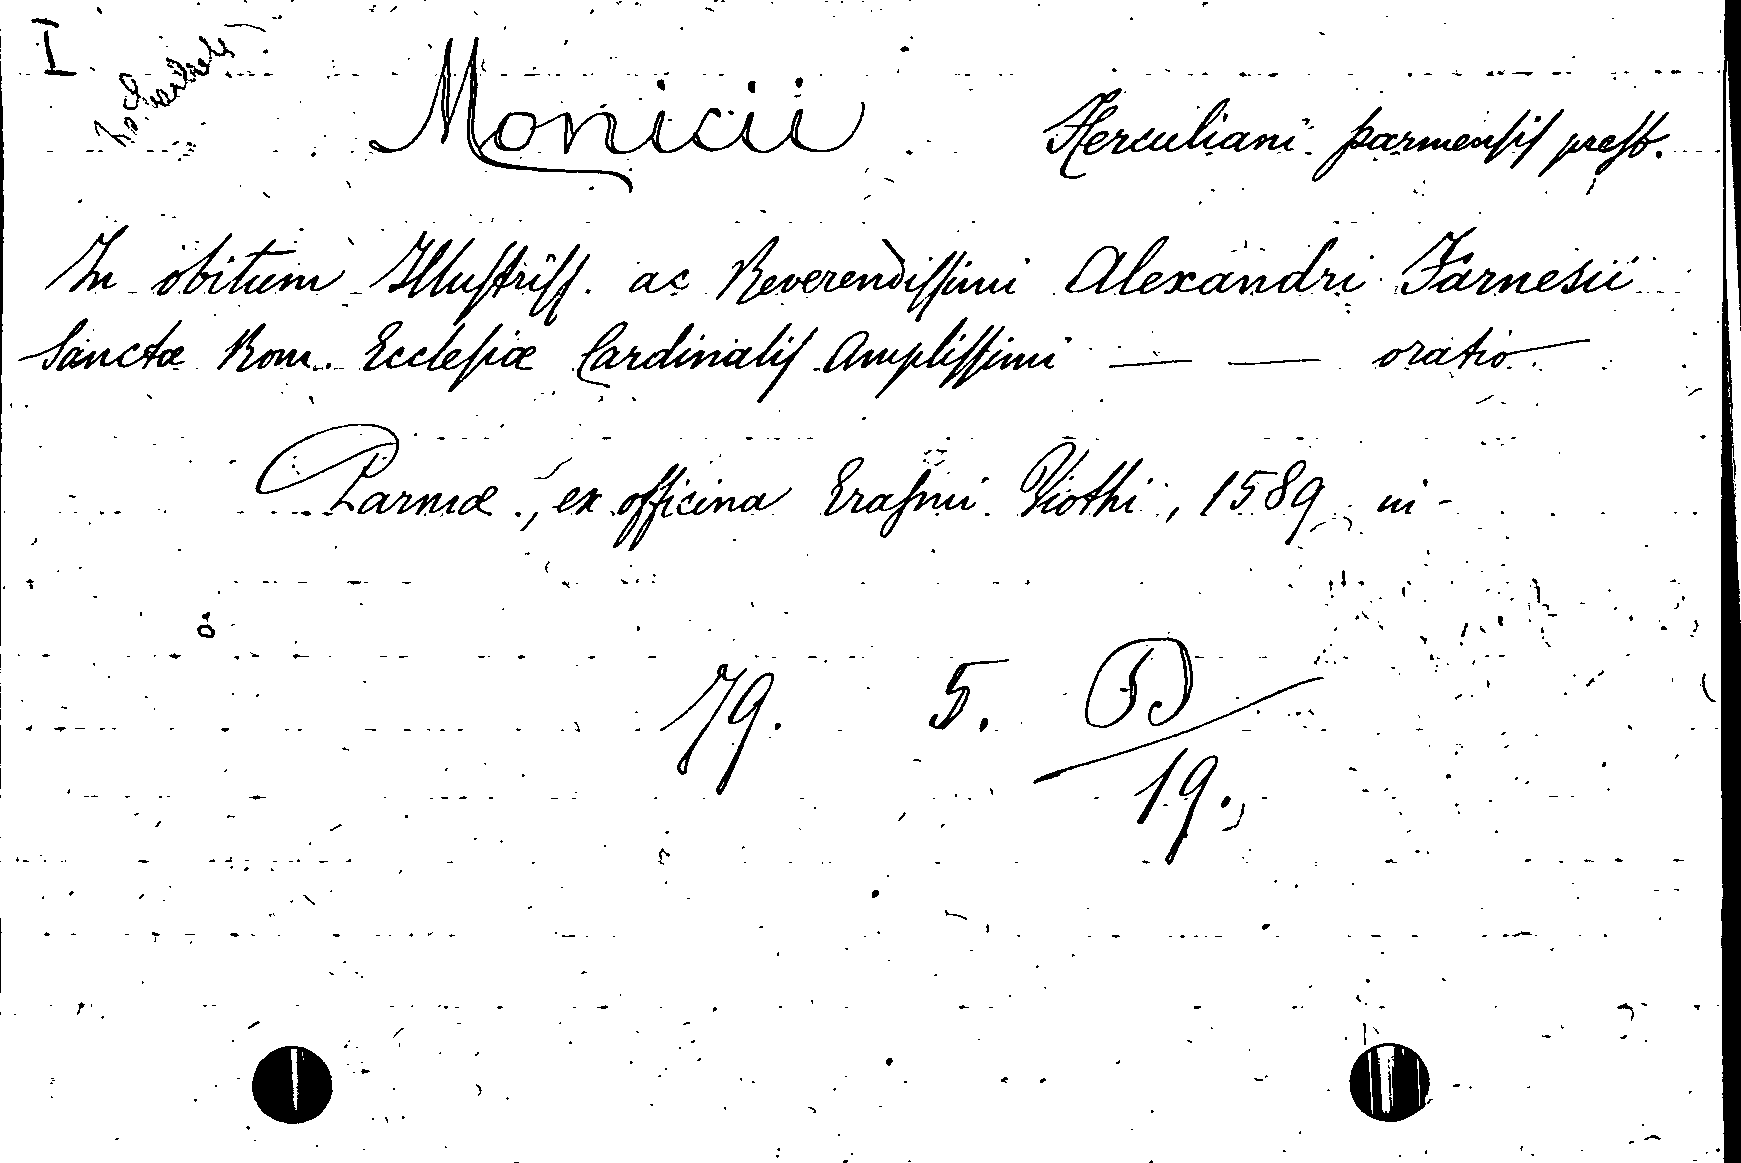 I
Monicii Herculiani parmensis presb.
In obitum Illustriss. ac Reverendissimi Alexandri Farnesii
Sanctæ Rom. Ecclesiæ Cardinalis Amplissimi — — oratio
Parmæ, ex officina Erasmi Viothi, 1589 in-
79. 5. D
19.